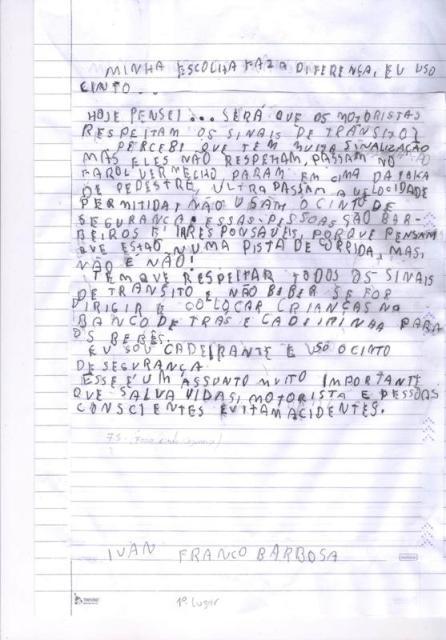 MINHA ESCOLHA FAZ A DIFERENÇA, EU USO
CINTO...
HOJE PENSEI... SERÁ QUE OS MOTORISTAS
RESPEITAM OS SINAIS DE TRÂNSITO?
PERCEBI QUE TEM MUITA SINALIZAÇÃO
MAS ELES NÃO RESPEITAM, PASSAM NO
FAROL VERMELHO PARAM EM CIMA DA FAIXA
DE PEDESTRE, ULTRAPASSAM A VELOCIDADE
PERMITIDA, NÃO USAM O CINTO DE
SEGURANÇA. ESSAS PESSOAS SÃO BAR-
BEIROS E IRRESPONSÁVEIS, PORQUE PENSAM
QUE ESTÃO NUMA PISTA DE CORRIDA, MAS,
NÃO É NÃO!
TEM QUE RESPEITAR TODOS OS SINAIS
DE TRÂNSITO E NÃO BEBER SE FOR
DIRIGIR E COLOCAR CRIANÇAS NO
BANCO DE TRÁS E CADEIRINHA PARA
OS BEBÊS.
EU SOU CADEIRANTE E USO O CINTO
DE SEGURANÇA.
ESSE É UM ASSUNTO MUITO IMPORTANTE
QUE SALVA VIDAS, MOTORISTA E PESSOAS
CONSCIENTES EVITAM ACIDENTES.
IVAN FRANCO BARBOSA
1º lugar